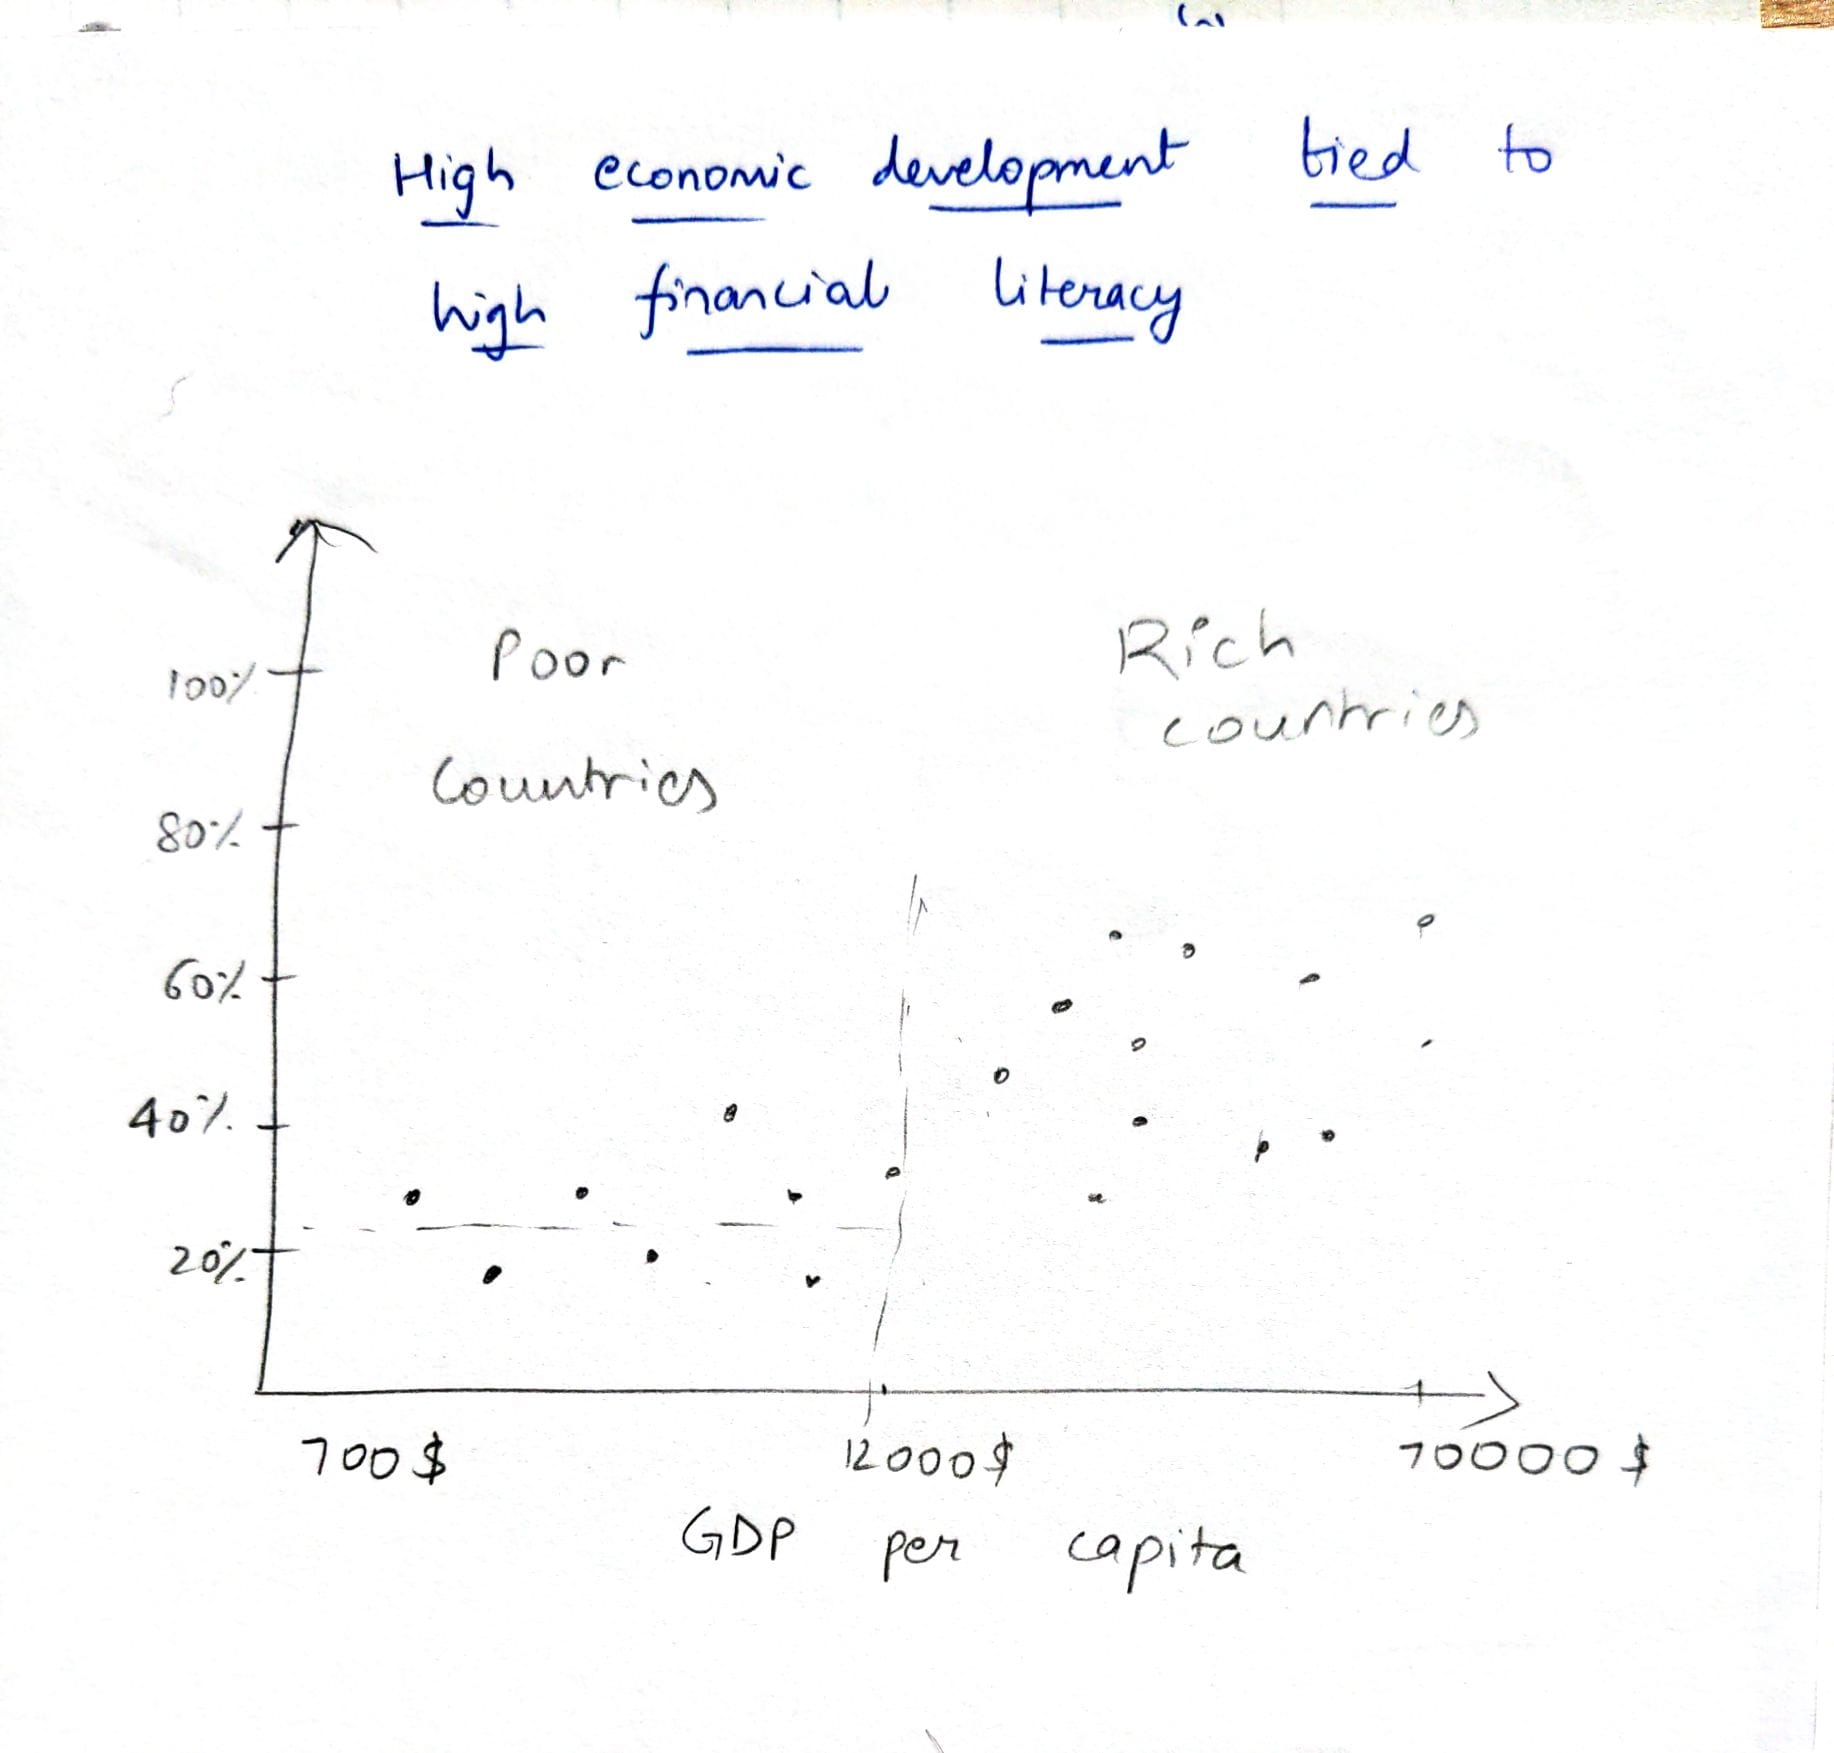 High economic development tied to
high financial literacy
Poor
Countries
Rich
countries
100%
80%
60%
40%
20%
700$
12000$
70000$
GDP per capita